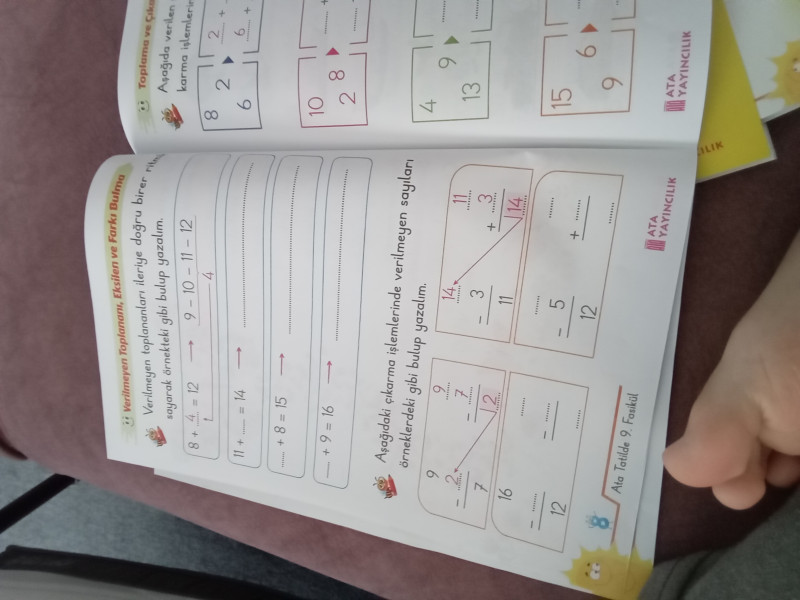 Verilmeyen Toplananı, Eksilen ve Farkı Bulma
Verilmeyen toplananları ileriye doğru birer
sayarak örnekteki gibi bulup yazalım.
8 + 4 = 12 → 9 - 10 - 11 - 12
4
11 + ...... = 14 → ......
...... + 8 = 15 → ......
...... + 9 = 16 → ......
Aşağıdaki çıkarma işlemlerinde verilmeyen sayıları
örneklerdeki gibi bulup yazalım.
9 9 14 11
- 2 - 7 - 3 + 3
7 2 11 14
16 ...... ...... ......
- ...... - ...... - 5 + ......
12 ...... 12 ......
8
Ata Tatilde 9. Fasikül
ATA
YAYINCILIK
Toplama ve
Aşağıda verilen
karma
8 2
2 +
6
6 +
10
8
2
4
9
13
15
6
9
ATA
YAYINCILIK